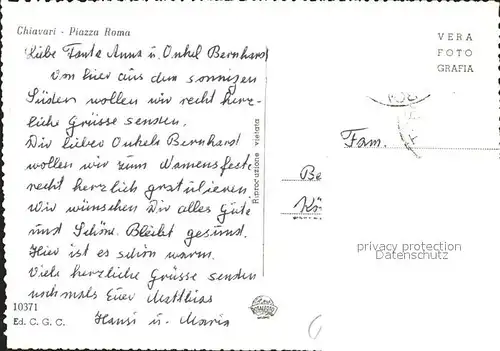 Chiavari - Piazza Roma
Liebe Tante Anna u. Onkel Bernhard
Von hier aus dem sonnigen
Süden wollen wir recht herz-
liche Grüsse senden.
Dir lieber Onkel Bernhard
wollen wir zum Namensfeste
recht herzlich gratulieren
Wir wünschen Dir alles Gute
und Schöne. Bleibt gesund.
Hier ist es schön warm.
Viele herzliche Grüsse senden
nochmals Euer Matthias
Hansi u. Maria
10371
Ed. C. G. C.
Riproduzione vietata
VERA
FOTO
GRAFIA
Fam.
Be
privacy protection
Datenschutz